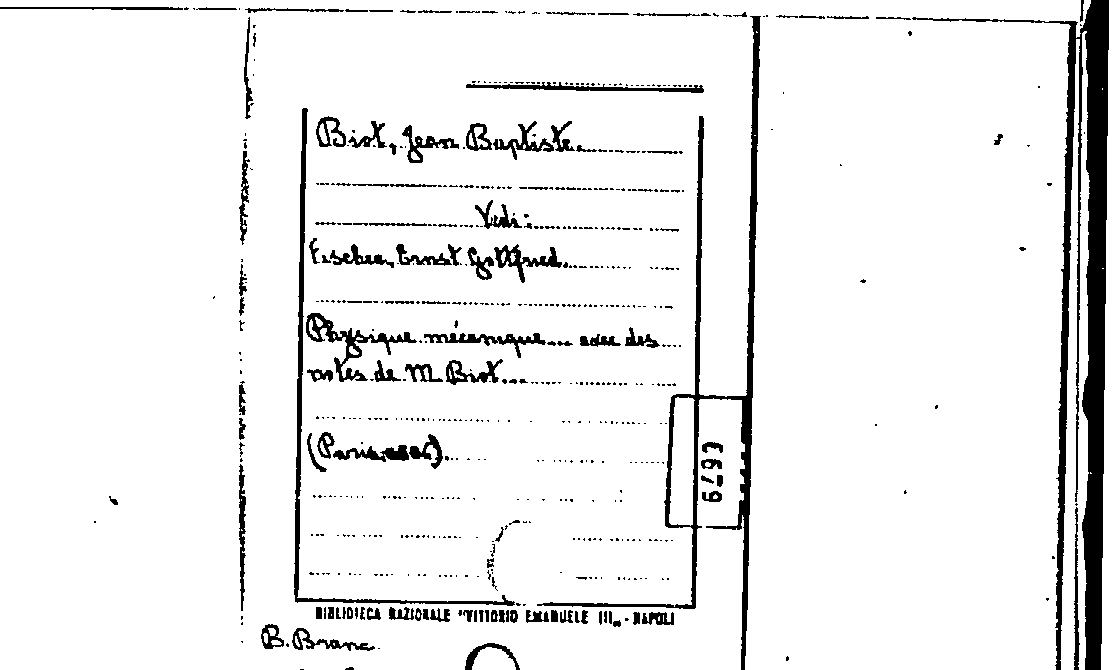 Biot, Jean Baptiste.
Vedi:
Fischer, Ernst Gottfried.
Physique mécanique... avec des
notes de M. Biot...
(Paris,
BIBLIOTECA NAZIONALE "VITTORIO EMANUELE III„ - NAPOLI
B. Branc.